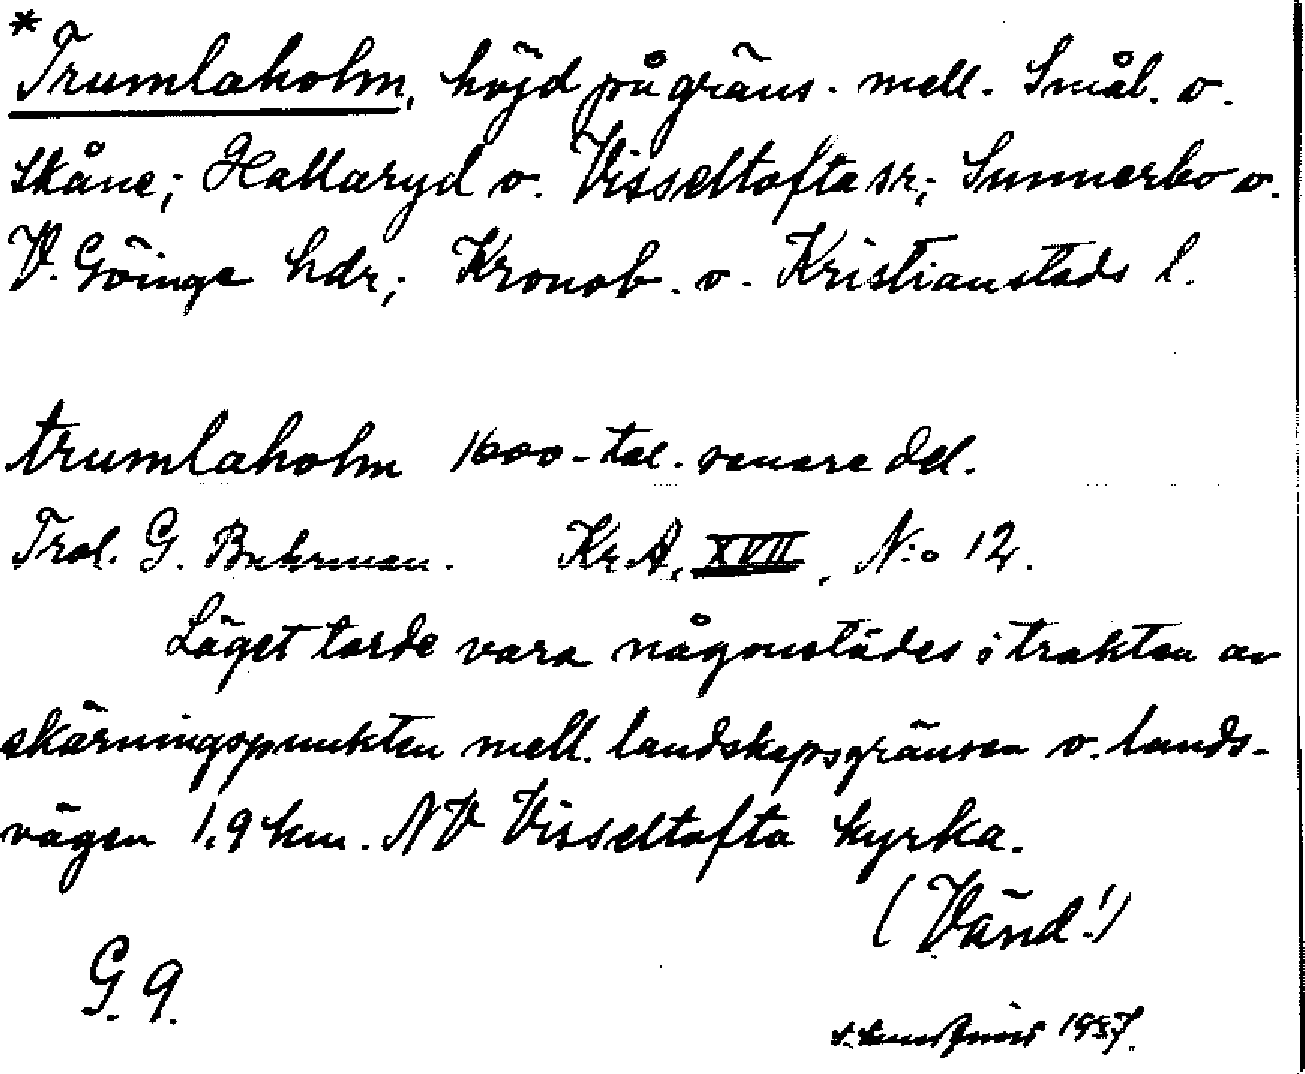 *
Trumlaholm, höjd på gräns. mell. Smål. o.
Skåne; Hallaryd o. Visseltofta sr; Sunnerbo o.
V. Göinge hdr; Kronob. o. Kristianstads l.
trumlaholm 1600-tal. senare del.
Trol. G. Buhrman. Kr.A. XVII, N:o 12.
Läget torde vara någonstädes i trakten av
skärningspunkten mell. landskapsgränsen o. lands-
vägen 1,9 km. NV Visseltofta kyrka.
(Vänd!)
G. 9.
1957.